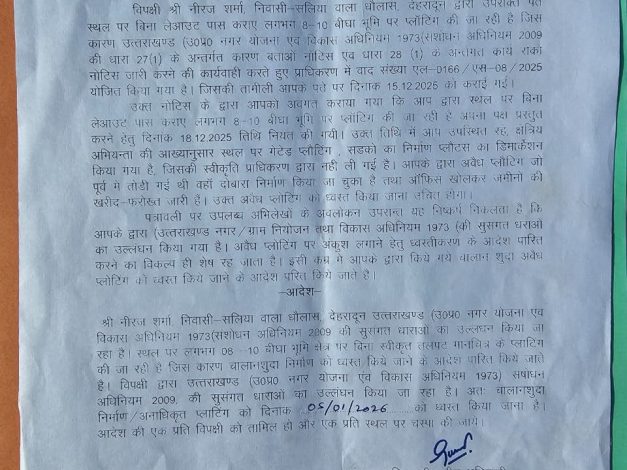 विपक्षी श्री नीरज शर्मा, निवासी-सलिया वाला धौलास, देहरादून द्वारा उपरोक्त पते
स्थल पर बिना लेआउट पास कराए लगभग 8-10 बीघा भूमि पर प्लॉटिंग की जा रही है जिस
कारण उत्तराखण्ड (उ0प्र0 नगर योजना एवं विकास अधिनियम 1973(संशोधन अधिनियम 2009
की धारा 27(1) के अन्तर्गत कारण बताओं नोटिस एवं धारा 28 (1) के अन्तर्गत कार्य रोको
नोटिस जारी करने की कार्यवाही करते हुए प्राधिकरण में वाद संख्या एल-0166/एस-08/2025
योजित किया गया है। जिसकी तामीली आपके पते पर दिनांक 15.12.2025 को कराई गई।
उक्त नोटिस के द्वारा आपको अवगत कराया गया कि आप द्वारा स्थल पर बिना
लेआउट पास कराए लगभग 8-10 बीघा भूमि पर प्लॉटिंग की जा रही है अपना पक्ष प्रस्तुत
करने हेतु दिनांक 18.12.2025 तिथि नियत की गयी। उक्त तिथि में आप उपस्थित रहे, क्षत्रिय
अभियन्ता की आख्यानुसार स्थल पर गेटेड प्लॉटिंग , सडको का निर्माण प्लॉटस का डिमार्केशन
किया गया है, जिसकी स्वीकृति प्राधिकरण द्वारा नही ली गई है। आपके द्वारा अवैध प्लॉटिंग जो
पूर्व मे तोडी गई थी वहाँ दोबारा निर्माण किया जा चुका है तथा ऑफिस खोलकर जमीनो की
खरीद-फरोख्त जारी हैं। उक्त अवैध प्लाटिंग को ध्वस्त किया जाना उचित होगा।
पत्रावली पर उपलब्ध अभिलेखो के अवलोकन उपरान्त यह निष्कर्ष निकलता है कि
आपके द्वारा (उत्तराखण्ड नगर/ग्राम नियोजन तथा विकास अधिनियम 1973 (की सुसंगत धराओं
का उल्लघंन किया गया है। अवैध प्लोटिंग पर अंकुश लगाने हेतु ध्वस्तीकरण के आदेश पारित
करने का विकल्प ही शेष रह जाता है। इसी क्रम मे आपके द्वारा किये गये चालान शुदा अवैध
प्लोटिंग को ध्वस्त किये जाने के आदेश पारित किये जाते है।
-आदेश-
श्री नीरज शर्मा, निवासी-सलिया वाला धौलास, देहरादून उत्तराखण्ड (उ0प्र0 नगर योजना एवं
विकास अधिनियम 1973(संशोधन अधिनियम 2009 की सुसंगत धाराओं का उल्लंघन किया जा
रहा है। स्थल पर लगभग 08-10 बीघा भूमि क्षेत्र पर बिना स्वीकृत तलपट मानचित्र के प्लाटिंग
की जा रही है जिस कारण चालानशुदा निर्माण को ध्वस्त किये जाने के आदेश पारित किये जाते
है। विपक्षी द्वारा उत्तराखण्ड (उ0प्र0 नगर योजना एवं विकास अधिनियम 1973) सपाधन
अधिनियम 2009, की सुसंगत धाराओं का उल्लंघन किया जा रहा है। अतः चालानशुदा
निर्माण/अनाधिकृत प्लाटिंग को दिनांक 05/01/2026 को ध्वस्त किया जाना है।
आदेश की एक प्रति विपक्षी को तामिल हो और एक प्रति स्थल पर चस्पा की जाये।